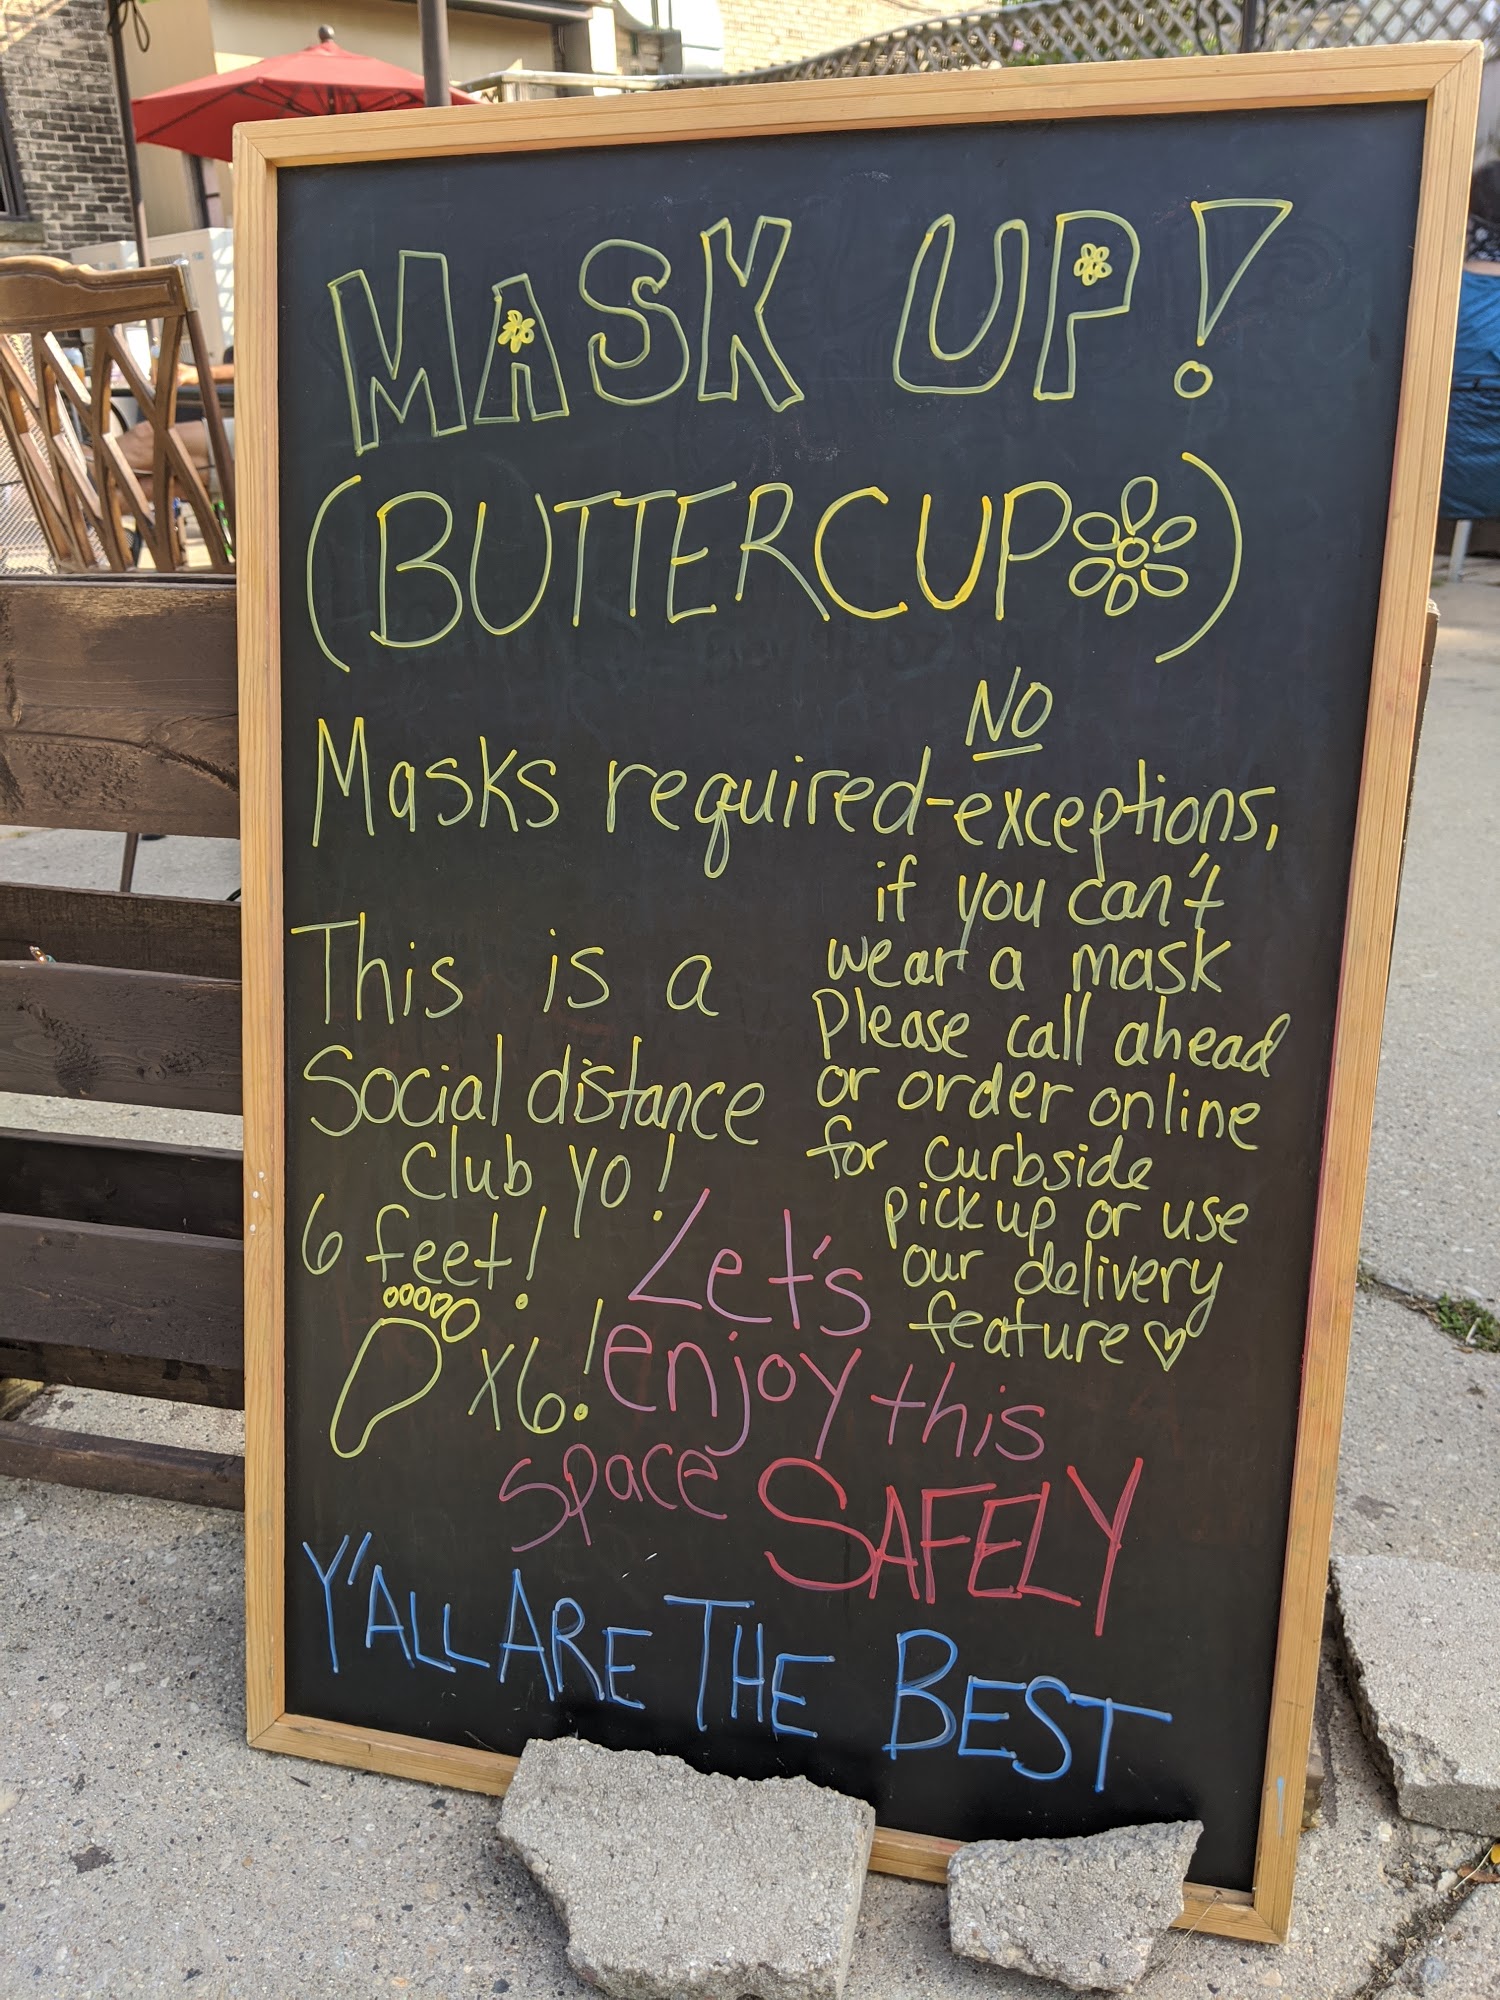 MASK UP!
(BUTTERCUP)
NO
Masks required-exceptions,
if you can't
wear a mask
Please call ahead
or order online
for curbside
pick up or use
our delivery
feature ♡
This is a
Social distance
club yo!
6 feet!
x6!
Let's
enjoy this
space SAFELY
Y'ALL ARE THE BEST